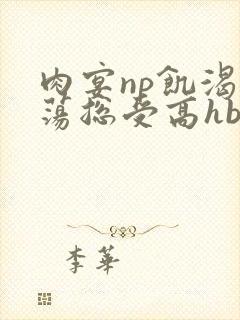 肉宴np飢渴
蕩總受高hb
李華